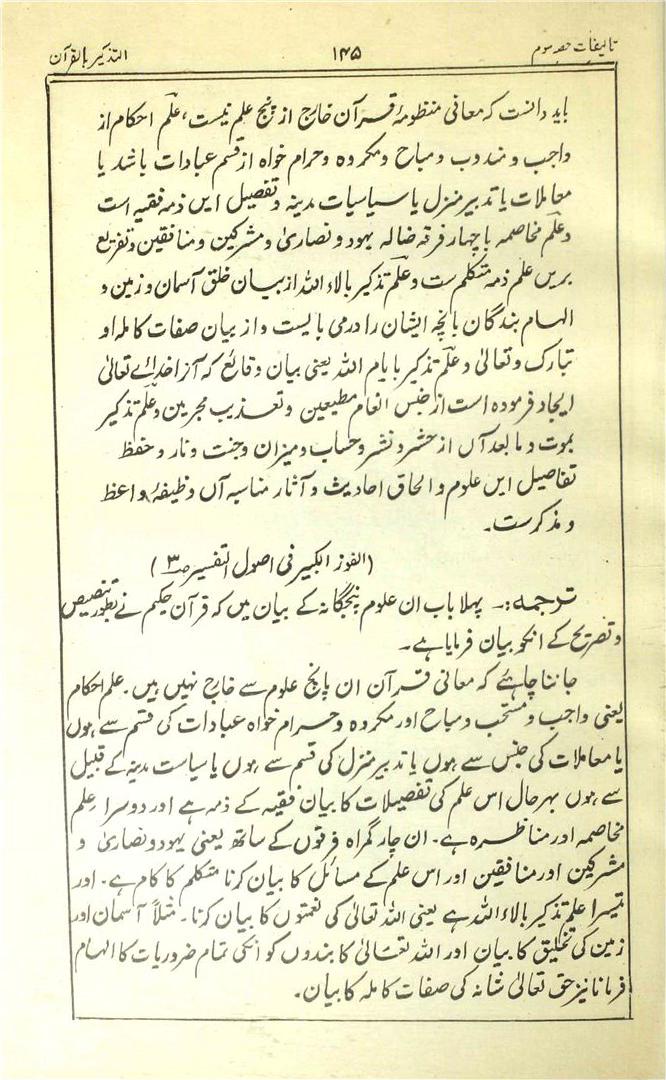 تالیفات حصہ سوم ۱۴۵ التذکیر بالقرآن
باید دانست کہ معانی منظومۂ قرآن خارج از پنج علم نیست، علم احکام از
واجب و مندوب و مباح و مکروہ و حرام خواہ از قسم عبادات باشد یا
معاملات یا تدبیر منزل یا سیاسیات مدینہ و تفصیل ایں ذمہ فقیہ است
و علم مخاصمہ با چہار فرقہ ضالہ یہود و نصاریٰ و مشرکین و منافقین و تفریع
بریں علم ذمہ متکلم ست و علم تذکیر بالاء اللہ از بیان خلق آسمان و زمین و
الہام بندگان بانچہ ایشان را درمی بایست و از بیان صفات کاملہ او
تبارک و تعالیٰ و علم تذکیر بایام اللہ یعنی بیان وقائع کہ آنرا خدائے تعالیٰ
ایجاد فرمودہ است از جنس انعام مطیعین و تعذیب مجرمین و علم تذکیر
بموت و ما بعد آں از حشر و نشر و حساب و میزان و جنت و نار و حفظ
تفاصیل ایں علوم و الحاق احادیث و آثار مناسبہ آں وظیفۂ واعظ
و مذکر ست۔
(الفوز الکبیر فی اصول التفسیر صـ۳)
ترجمہ:۔ پہلا باب ان علوم پنجگانہ کے بیان میں کہ قرآن حکیم نے بطور تنصیص
و تصریح کے انکو بیان فرمایا ہے۔
جاننا چاہئے کہ معانی قرآن ان پانچ علوم سے خارج نہیں ہیں۔ علم احکام
یعنی واجب و مستحب و مباح اور مکروہ و حرام خواہ عبادات کی قسم سے ہوں
یا معاملات کی جنس سے ہوں یا تدبیر منزل کی قسم سے ہوں یا سیاست مدینہ کے قبیل
سے ہوں بہرحال اس علم کی تفصیلات کا بیان فقیہ کے ذمہ ہے اور دوسرا علم
مخاصمہ اور مناظرہ ہے۔ ان چار گمراہ فرقوں کے ساتھ یعنی یہود و نصاریٰ و
مشرکین اور منافقین اور اس علم کے مسائل کا بیان کرنا متکلم کا کام ہے۔ اور
تیسرا علم تذکیر بالاء اللہ ہے یعنی اللہ تعالیٰ کی نعمتوں کا بیان کرنا۔ مثلاً آسمان اور
زمین کی تخلیق کا بیان اور اللہ تعالیٰ کا بندوں کو انکی تمام ضروریات کا الہام
فرمانا نیز حق تعالیٰ شانہ کی صفات کاملہ کا بیان۔